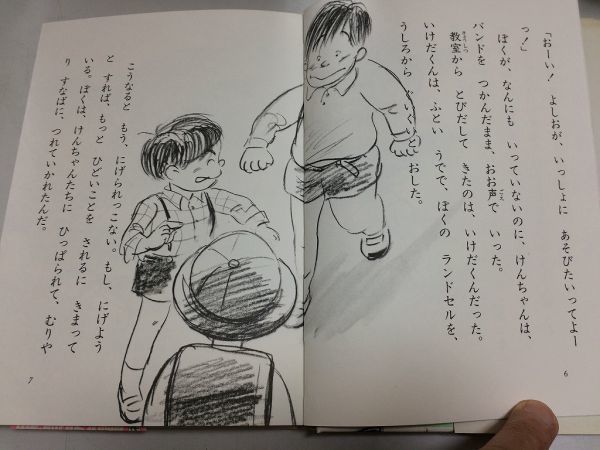 「おーい！　よしおが、いっしょに　あそびたいってよー
っ！」
ぼくが、なんにも　いっていないのに、けんちゃんは、
バンドを　つかんだまま、おお声で　いった。
教室から　とびだして　きたのは、いけだくんだった。
いけだくんは、ふとい　うでで、ぼくの　ランドセルを、
うしろから　ぐいぐいと　おした。
6
こうなると　もう、にげられっこない。もし、にげよう
と　すれば、もっと　ひどいことを　されるに　きまって
いる。ぼくは、けんちゃんたちに　ひっぱられて、むりや
り　すなばに、つれていかれたんだ。
7